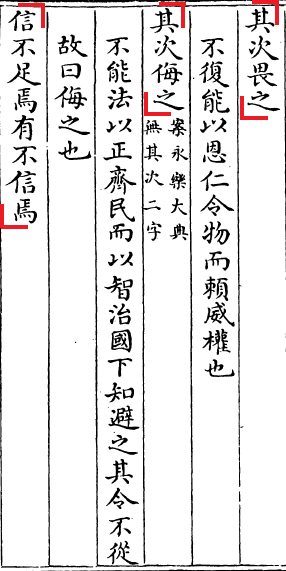 其次畏之
不復能以恩仁令物而賴威權也
其次侮之案永樂大典無其次二字
不能法以正齊民而以智治國下知避之其令不從
故曰侮之也
信不足焉有不信焉